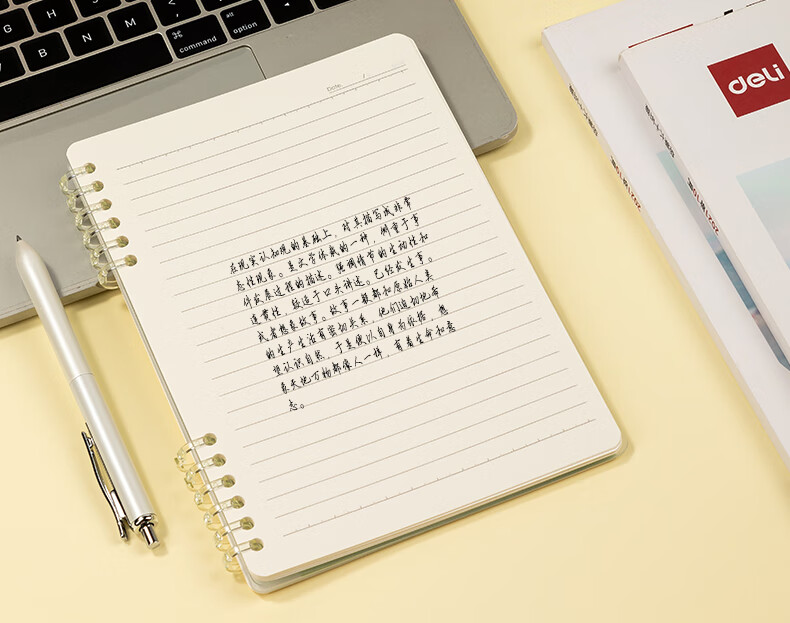 G
H
J
B
N
M
<
>
⌘
command
alt
option
Date.
/
在现实认知观的基础上，对其描写成非常
态性现象。是文学体裁的一种，侧重于事
件发展过程的描述。强调情节的生动性和
连贯性，较适于口头讲述。已经发生事。
或者想象故事。故事一般都和原始人类
的生产生活有密切关系，他们迫切地希
望认识自然，于是便以自身为依据，想
象天地万物都像人一样，有着生命和意
志。
deli